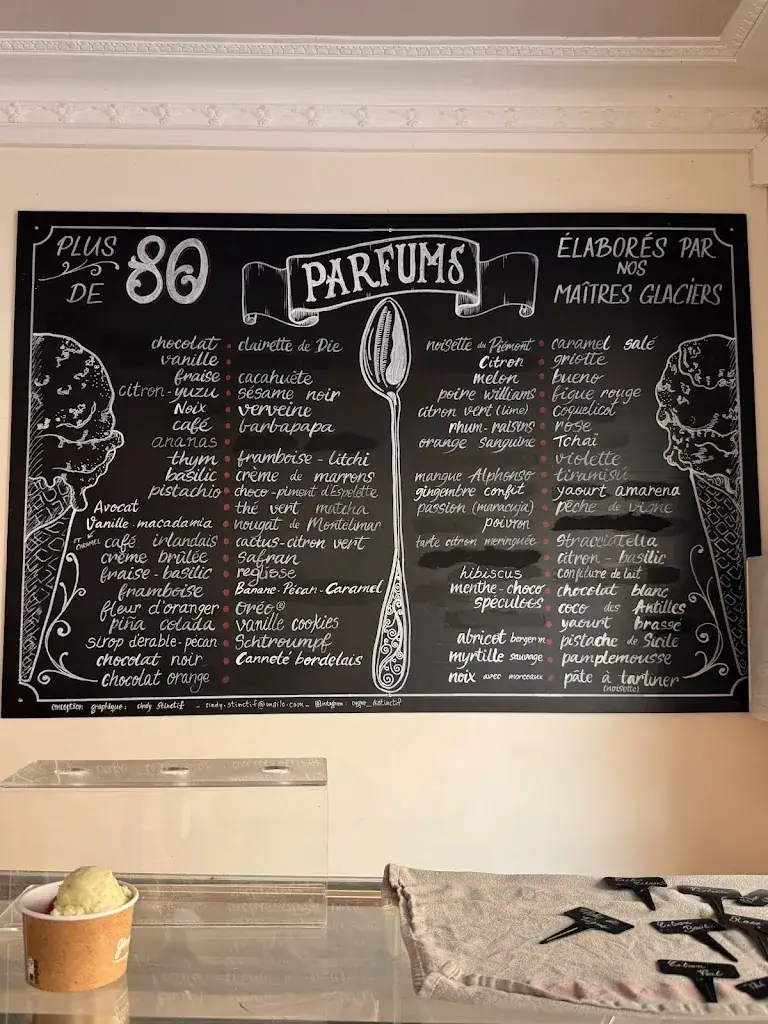 PLUS DE 80
PARFUMS
ÉLABORÉS PAR
NOS
MAÎTRES GLACIERS
chocolat
vanille
fraise
citron-yuzu
Noix
café
ananas
thym
basilic
pistachio
Avocat
Vanille macadamia
café irlandais
crème brûlée
fraise-basilic
framboise
fleur d'oranger
piña colada
sirop d'érable-pécan
chocolat noir
chocolat orange
clairette de Die
cacahuète
sésame noir
verveine
barbapapa
framboise-litchi
crème de marrons
choco-piment d'Espelette
thé vert matcha
nougat de Montelimar
cactus-citron vert
safran
réglisse
Banane-Pécan-Caramel
Oréo®
vanille cookies
Schtroumpf
Canneté bordelais
noisette du Piémont
Citron
melon
poire williams
citron vert (lime)
rhum-raisins
orange sanguine
mangue Alphonso
gingembre confit
passion (maracuja)
poivron
tarte citron meringuée
hibiscus
menthe-choco
spéculoos
abricot bergeron
myrtille sauvage
noix avec morceaux
caramel salé
griotte
bueno
figue rouge
coquelicot
rose
Tchaï
violette
tiramisu
yaourt amarena
pêche de vigne
Stracciatella
citron-basilic
confiture de lait
chocolat blanc
coco des Antilles
yaourt brassé
pistache de Sicile
pamplemousse
pâte à tartiner
(noisette)
conception graphique: cindy stinctif - cindy.stinctif@mailo.com